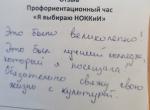 Отзыв
Профориентационный час
«Я выбираю НОККиИ»
Это было великолепно!
Это был лучший колледж,
который я посещала.
Обязательно свяжу свою
жизнь с культурой.